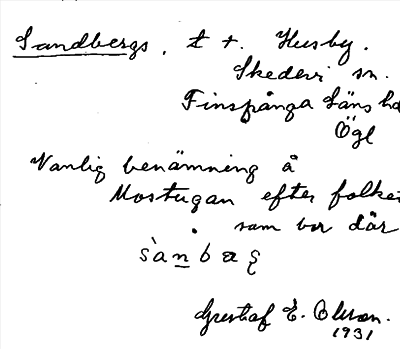 Sandbergs, t +. Husby.
Skedevi sn.
Finspånga läns hd
Ögl
Vanlig benämning å
Mostugan efter folket
som bor där
sànbæȩ
Gustaf E. Olsson.
1931